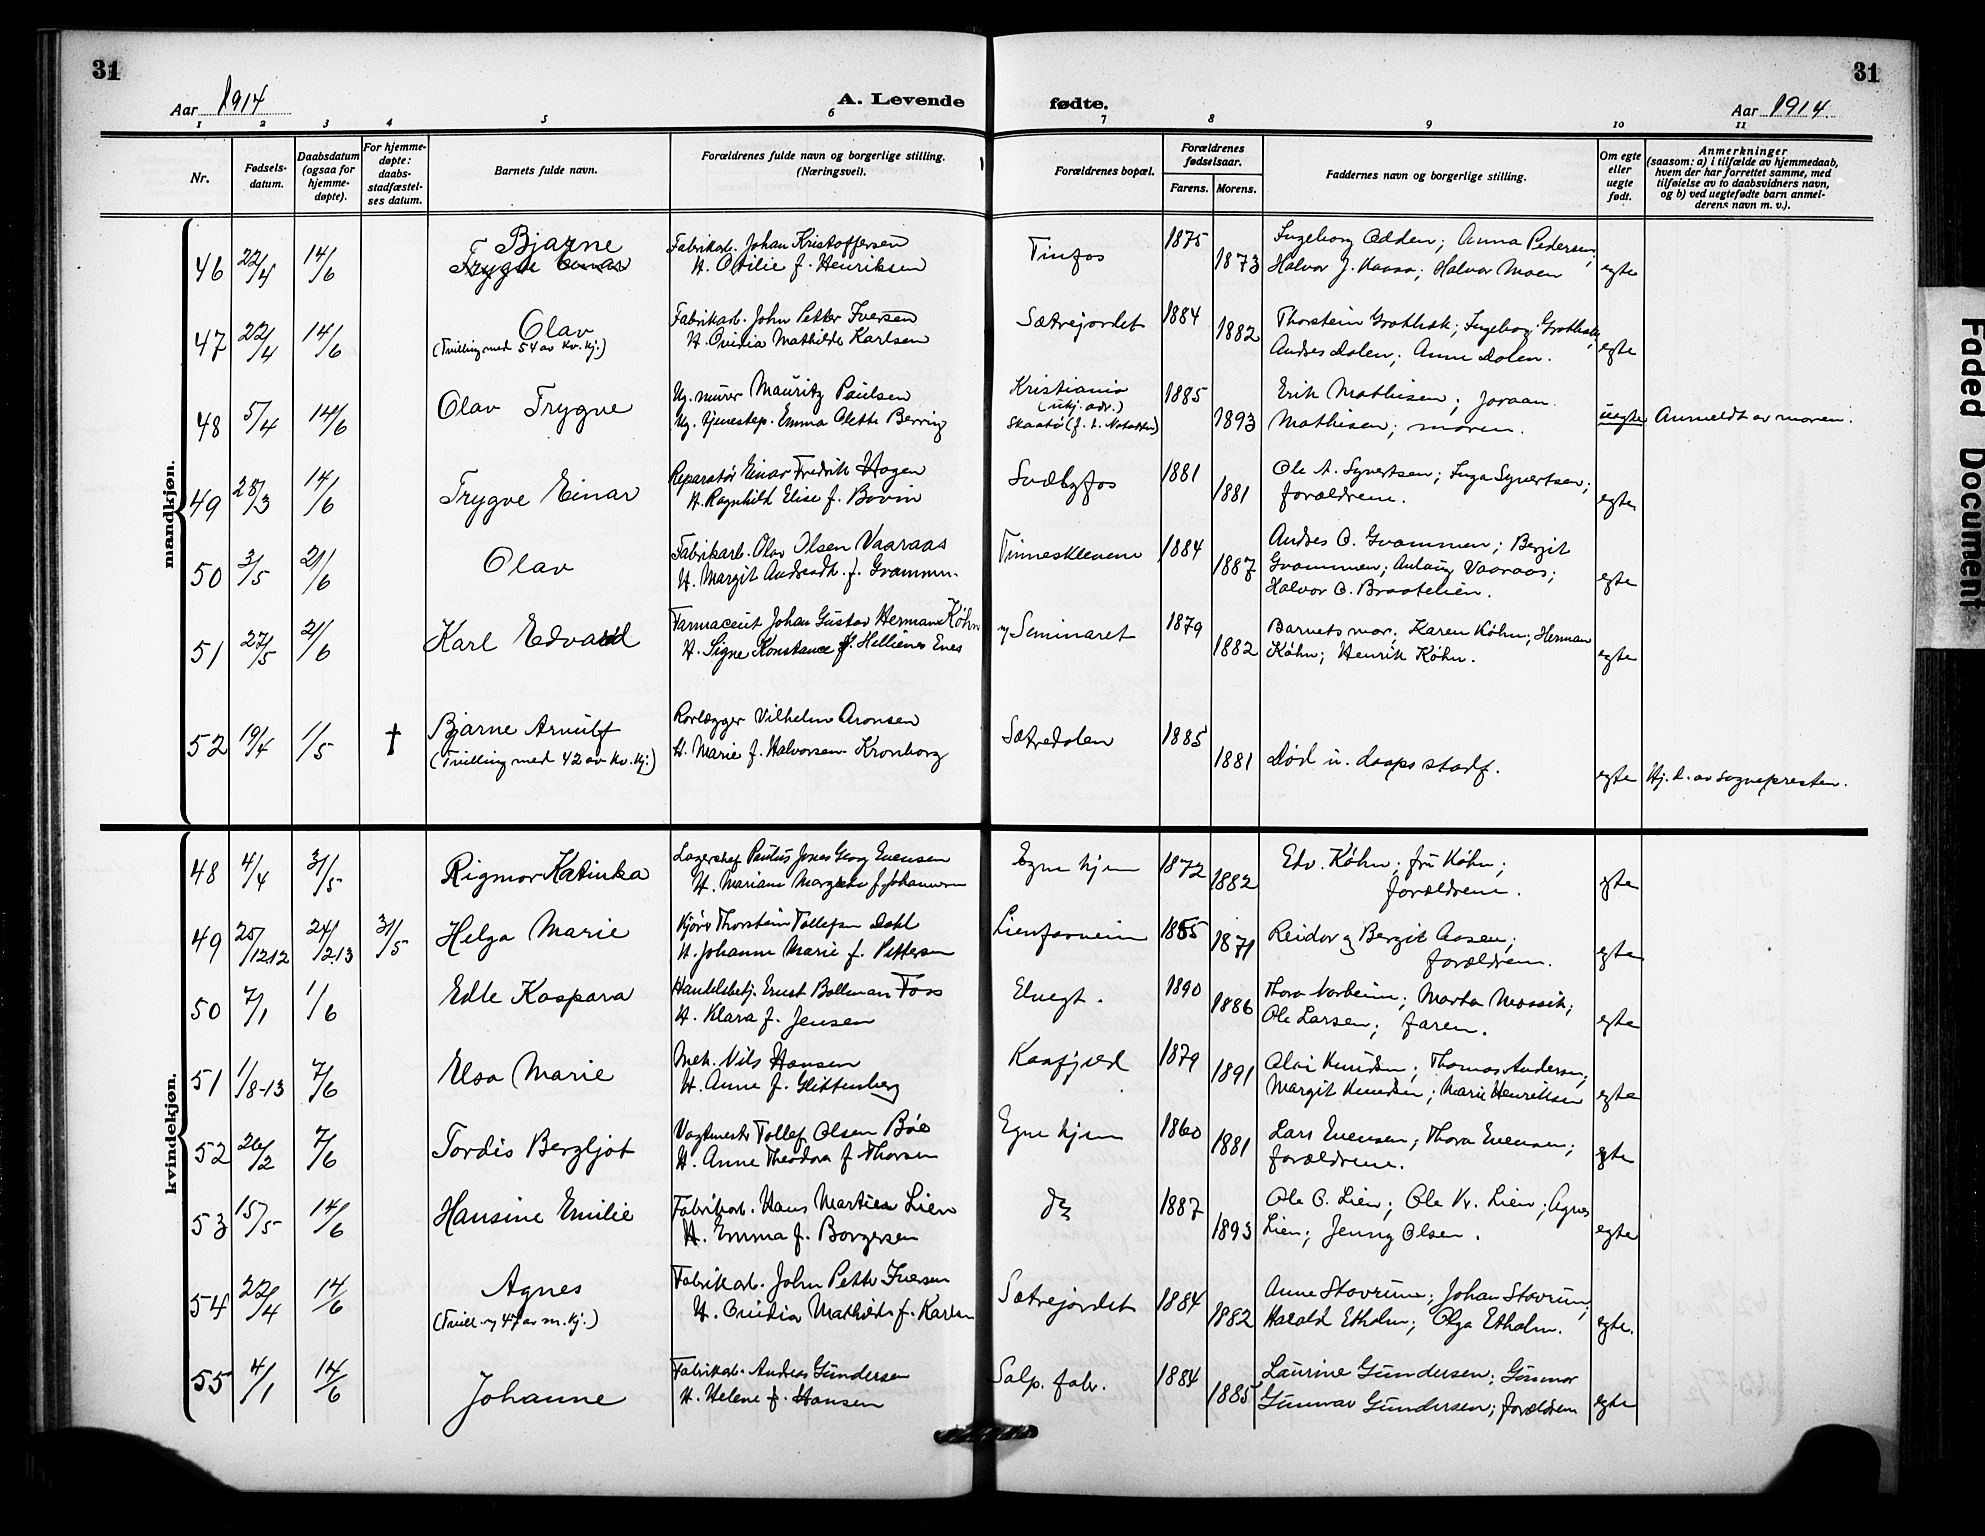 31
31
Aar 1914
A. Levende
fødte.
Aar 1914.
1 2 3 4 5 6 7 8 9 10 11
Nr.
Fødsels-
datum.
Daabsdatum
(ogsaa for
hjemme-
døpte).
For hjemme-
døpte:
daabs-
stadfæstel-
ses datum.
Barnets fulde navn.
Forældrenes fulde navn og borgerlige stilling.
(Næringsvei).
Forældrenes bopæl.
Forældrenes
fødselsaar.
Farens. Morens.
Faddernes navn og borgerlige stilling.
Om egte
eller
uegte
født.
Anmerkninger
(saasom: a) i tilfælde av hjemmedaab,
hvem der har forrettet samme, med
tilføielse av to daabsvidners navn,
og b) ved uegtefødte barn anmel-
derens navn m. v.).
mandkjøn.
46 22/4 14/6 Bjarne
Trygve Einar
Fabrikarb. Johan Kristoffersen
H. Otilie f. Henriksen
Tinfos 1875 1873
Ingeborg Odden; Anna Pedersen;
Halvor J. Kaasa; Halvor Moen
egte
47 22/4 14/6 Olav
(Tvilling med 54 av kv.kj.)
Fabrikarb. John Petter Iversen
H. Ovidia Mathilde Karlsen
Sætrejordet 1884 1882
Thorstein Grotbæk; Ingeborg Grotbæk;
Andres Dalen; Anne Dalen.
egte
48 5/4 14/6 Olav Trygve
Ug. murer Mauritz Paulsen
Ug. tjenestep. Emma Olette Berring
Kristiania
(ukj. adr.)
Skaatø (f. t. Notodden)
1885 1893
Erik Mathisen; Joraan
Mathisen; moren.
uegte Anmeldt av moren.
49 28/3 14/6 Trygve Einar
Reparatør Einar Fredrik Hagen
H. Ragnhild Elise f. Bovin
Svælgfos 1881 1881
Ole A. Syvertsen; Inga Syvertsen;
forældrene.
egte
50 3/5 21/6 Olav
Fabrikarb. Olav Olsen Vaaraas
H. Margit Andreadt. f. Grammen.
Tinnesklevene 1884 1887
Andres O. Gvammen; Bergit
Gvammen; Aslaug Vaaraas;
Halvor O. Braatelien.
egte
51 27/5 21/6 Karl Edvard
Farmaceut Johan Gustav Herman Køhn
H. Signe Konstance f. Hellienes Enes
Seminaret 1879 1882
Barnets mor; Karen Køhn; Herman
Køhn; Henrik Køhn.
egte
52 19/4 1/5 † Bjarne Arnulf
(Tvilling med 42 av kv.kj.)
Rørlægger Vilhelm Aronsen
H. Marie f. Halvorsen Kronborg
Sætredalen 1885 1881
Død u. daapsstadf.
egte Hj. d. av sognepresten.
kvindekjøn.
48 4/4 31/5 Rigmor Katinka
Lagerchef Paulus Jonas Georg Evensen
H. Mariane Margrethe f. Johannesen
Egne hjem 1872 1882
Edv. Køhn; fru Køhn;
forældrene.
egte
49 25/12 12 24/2.13 31/5 Helga Marie
Kjører Thorstein Tollefsen Dahl
H. Johanne Marie f. Pettersen
Lienfosveien 1865 1871
Reidar og Bergit Aasen;
forældrene.
egte
50 7/1 1/6 Edle Kaspara
Handelsbetj. Ernst Bollman Foss
H. Klara f. Jensen
Elvegt. 1890 1886
Thora Norheim; Marta Mossik;
Ole Larsen; faren.
egte
51 1/8-13 7/6 Elsa Marie
Mek. Nils Hansen
H. Anne f. Glittenberg
Kaafjeld 1879 1891
Olai Knudsen; Thomas Andersen;
Margit Knudsen; Marie Henriksen
egte
52 26/2 7/6 Tordis Bergljot
Vagtmester Tollef Olsen Bøe
H. Anne Theodora f. Thorsen
Egne hjem 1860 1881
Lars Evensen; Thora Evensen;
forældrene.
egte
53 15/5 14/6 Hansine Emilie
Fabrikarb. Hans Marties Lien
H. Emma f. Borgersen
do 1887 1893
Ole O. Lien; Ole Kr. Lien; Agnes
Lien; Jenny Olsen.
egte
54 22/4 14/6 Agnes
(Tvill. m 47 av m.kj.)
Fabrikarb. John Petter Iversen
H. Ovidia Mathilde f. Karlsen
Sætrejordet 1884 1882
Anne Stavrum; Johan Stavrum;
Harald Etholm; Olga Etholm.
egte.
55 4/1 14/6 Johanne
Fabrikarb. Andreas Gundersen
H. Helene f. Hansen
Salp. fabr. 1884 1885
Laurine Gundersen; Gunnar
Gunvar Gundersen; forældrene
egte
Faded Document